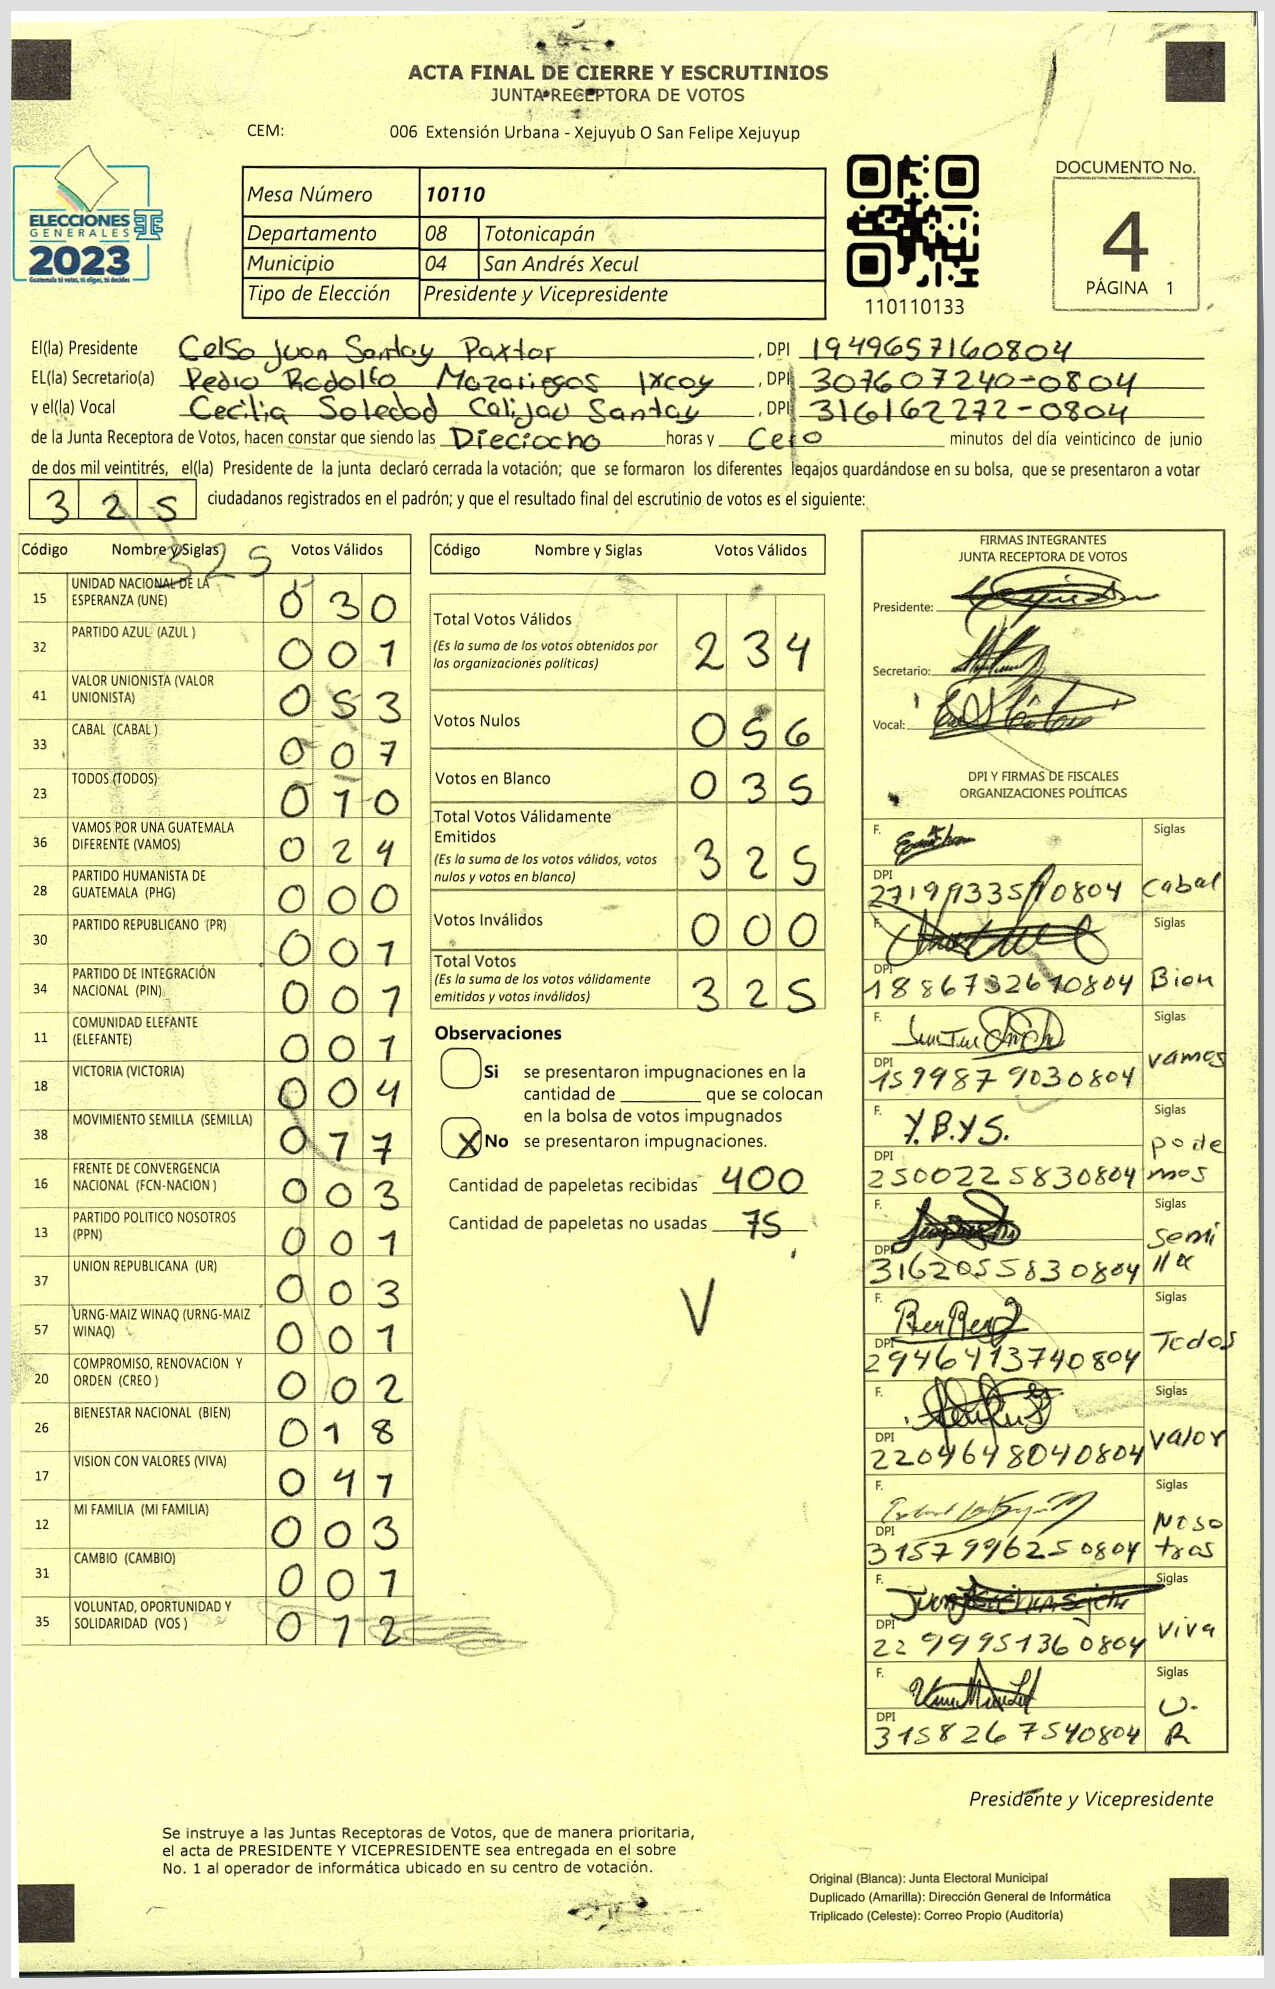 ACTA FINAL DE CIERRE Y ESCRUTINIOS
JUNTA RECEPTORA DE VOTOS
CEM: 006 Extensión Urbana - Xejuyub O San Felipe Xejuyup
ELECCIONES
GENERALES
2023
Guatemala tú votas, tú eliges, tú decides
Mesa Número 10110
Departamento 08 Totonicapán
Municipio 04 San Andrés Xecul
Tipo de Elección Presidente y Vicepresidente
110110133
DOCUMENTO No.
4
PÁGINA 1
El(la) Presidente Celso Juan Santay Paxtor, DPI 1949657160804
EL(la) Secretario(a) Pedro Rodolfo Mazariegos Ixcoy, DPI 307607240-0804
y el(la) Vocal Cecilia Soledad Calijau Santay, DPI 316162272-0804
de la Junta Receptora de Votos, hacen constar que siendo las Dieciocho horas y Cero minutos del día veinticinco de junio
de dos mil veintitrés, el(la) Presidente de la junta declaró cerrada la votación; que se formaron los diferentes legajos guardándose en su bolsa, que se presentaron a votar
325 ciudadanos registrados en el padrón; y que el resultado final del escrutinio de votos es el siguiente:
325
Código Nombre y Siglas Votos Válidos
15 UNIDAD NACIONAL DE LA
ESPERANZA (UNE) 030
32 PARTIDO AZUL (AZUL ) 001
41 VALOR UNIONISTA (VALOR
UNIONISTA) 053
33 CABAL (CABAL ) 007
23 TODOS (TODOS) 010
36 VAMOS POR UNA GUATEMALA
DIFERENTE (VAMOS) 024
28 PARTIDO HUMANISTA DE
GUATEMALA (PHG) 000
30 PARTIDO REPUBLICANO (PR) 001
34 PARTIDO DE INTEGRACIÓN
NACIONAL (PIN) 001
11 COMUNIDAD ELEFANTE
(ELEFANTE) 001
18 VICTORIA (VICTORIA) 004
38 MOVIMIENTO SEMILLA (SEMILLA) 017
16 FRENTE DE CONVERGENCIA
NACIONAL (FCN-NACION ) 003
13 PARTIDO POLITICO NOSOTROS
(PPN) 001
37 UNION REPUBLICANA (UR) 003
57 URNG-MAIZ WINAQ (URNG-MAIZ
WINAQ) 001
20 COMPROMISO, RENOVACION Y
ORDEN (CREO ) 002
26 BIENESTAR NACIONAL (BIEN) 018
17 VISION CON VALORES (VIVA) 041
12 MI FAMILIA (MI FAMILIA) 003
31 CAMBIO (CAMBIO) 001
35 VOLUNTAD, OPORTUNIDAD Y
SOLIDARIDAD (VOS ) 012
Código Nombre y Siglas Votos Válidos
Total Votos Válidos 234
(Es la suma de los votos obtenidos por
las organizaciones políticas)
Votos Nulos 056
Votos en Blanco 035
Total Votos Válidamente
Emitidos 325
(Es la suma de los votos válidos, votos
nulos y votos en blanco)
Votos Inválidos 000
Total Votos 325
(Es la suma de los votos válidamente
emitidos y votos inválidos)
Observaciones
Si se presentaron impugnaciones en la
cantidad de ________ que se colocan
en la bolsa de votos impugnados
X No se presentaron impugnaciones.
Cantidad de papeletas recibidas 400
Cantidad de papeletas no usadas 75
V
FIRMAS INTEGRANTES
JUNTA RECEPTORA DE VOTOS
Presidente:
Secretario:
Vocal:
DPI Y FIRMAS DE FISCALES
ORGANIZACIONES POLÍTICAS
F. Siglas
DPI 2719933510804 Cabal
F. Siglas
DPI 1886732610804 Bien
F. Siglas
DPI 1599879030804 vamos
F. Y.B.Y.S. Siglas
DPI 2500225830804 podemos
F. Siglas
DPI 3162055830804 semilla
F. Siglas
DPI 2946413740804 Todos
F. Siglas
DPI 2204648040804 valor
F. Siglas
DPI 3157996250804 Nosotros
F. Siglas
DPI 2299951360804 viva
F. Siglas
DPI 3158267540804 U.R
Presidente y Vicepresidente
Se instruye a las Juntas Receptoras de Votos, que de manera prioritaria,
el acta de PRESIDENTE Y VICEPRESIDENTE sea entregada en el sobre
No. 1 al operador de informática ubicado en su centro de votación.
Original (Blanca): Junta Electoral Municipal
Duplicado (Amarilla): Dirección General de Informática
Triplicado (Celeste): Correo Propio (Auditoría)